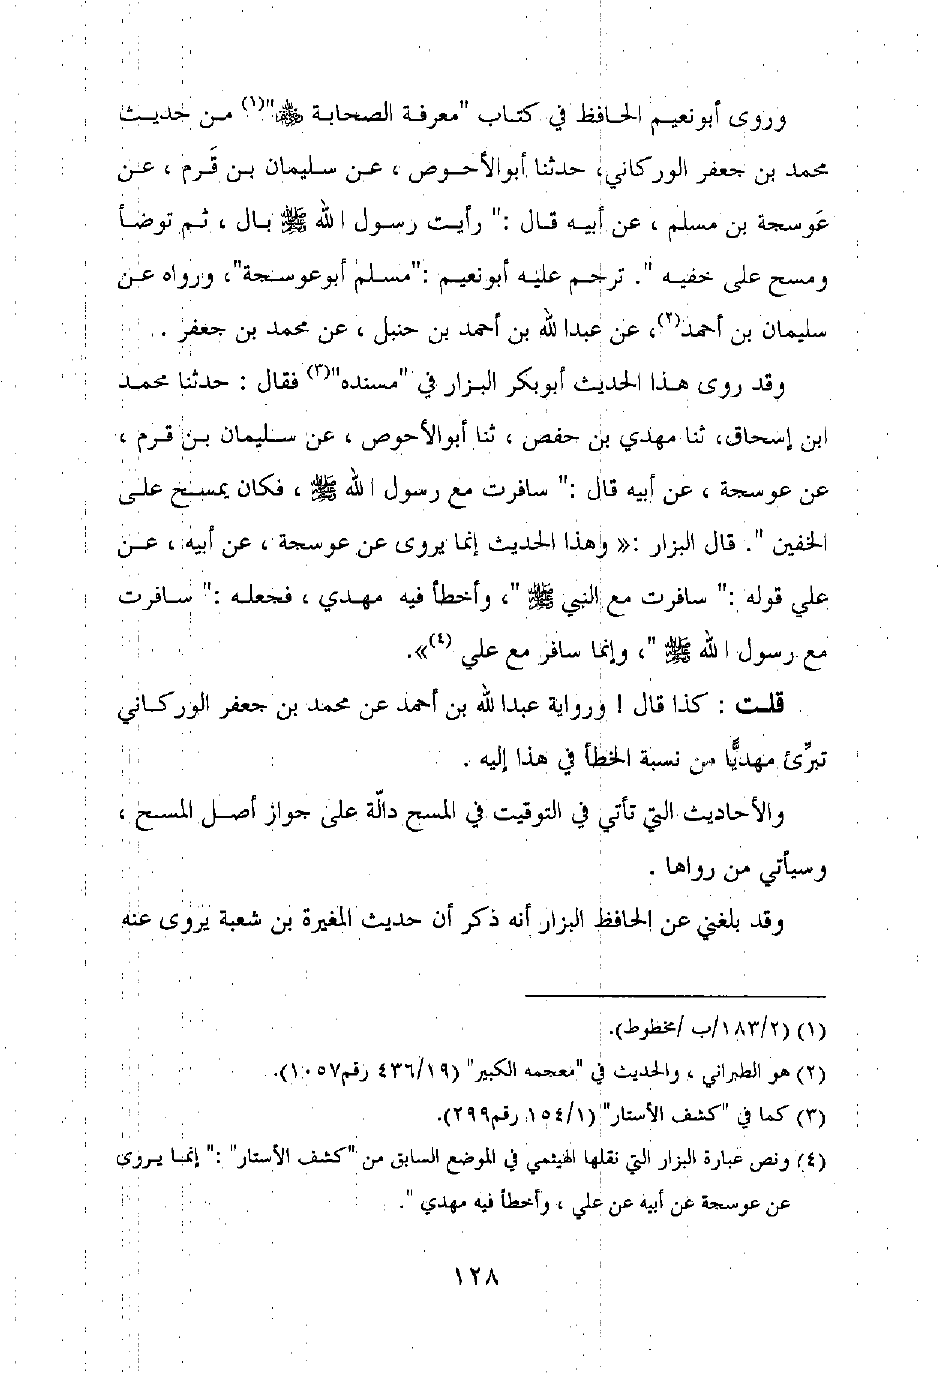 وروى أبونعيم الحافظ في كتاب "معرفة الصحابة ﷺ"(١) من حديث
محمد بن جعفر الوركاني، حدثنا أبوالأحوص ، عن سليمان بن قَرم ، عن
عَوسجة بن مسلم ، عن أبيه قال :" رأيت رسول الله ﷺ بال ، ثم توضأ
ومسح على خفيه ". ترجم عليه أبونعيم :"مسلم أبوعوسجة"، ورواه عن
سليمان بن أحمد(٢)، عن عبدالله بن أحمد بن حنبل ، عن محمد بن جعفر .
وقد روى هذا الحديث أبوبكر البزار في "مسنده"(٣) فقال : حدثنا محمد
ابن إسحاق، ثنا مهدي بن حفص ، ثنا أبوالأحوص ، عن سليمان بن قرم ،
عن عوسجة ، عن أبيه قال :" سافرت مع رسول الله ﷺ ، فكان يمسح على
الخفين ". قال البزار :« وهذا الحديث إنما يروى عن عوسجة ، عن أبيه ، عن
علي قوله :" سافرت مع النبي ﷺ "، وأخطأ فيه مهدي ، فجعله :" سافرت
مع رسول الله ﷺ "، وإنما سافر مع علي (٤)».
قلت : كذا قال ! ورواية عبدالله بن أحمد عن محمد بن جعفر الوركاني
تبرِّئ مهديًّا من نسبة الخطأ في هذا إليه .
والأحاديث التي تأتي في التوقيت في المسح دالّة على جواز أصل المسح ،
وسيأتي من رواها .
وقد بلغني عن الحافظ البزار أنه ذكر أن حديث المغيرة بن شعبة يروى عنه
(١) (١٨٣/٢/ب /مخطوط).
(٢) هو الطبراني ، والحديث في "معجمه الكبير" (٤٣٦/١٩ رقم١٠٥٧).
(٣) كما في "كشف الأستار" (١٥٤/١ رقم٢٩٩).
(٤) ونص عبارة البزار التي نقلها الهيثمي في الموضع السابق من "كشف الأستار" :" إنما يروى
عن عوسجة عن أبيه عن علي ، وأخطأ فيه مهدي ".
١٢٨